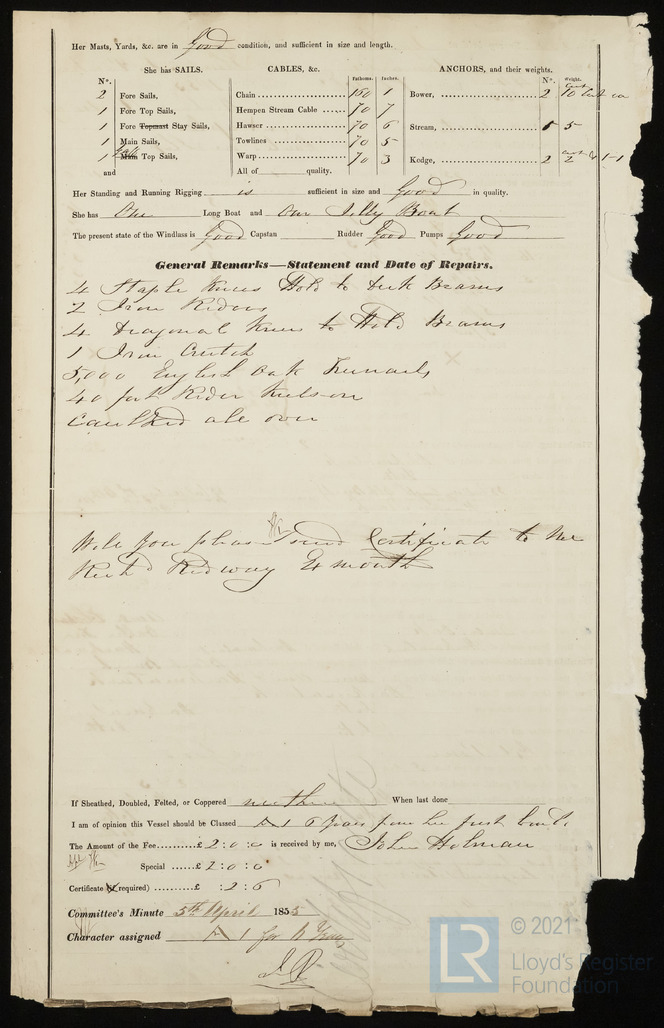 Her Masts, Yards, &c. are in Good condition, and sufficient in size and length.
She has SAILS. CABLES, &c. ANCHORS, and their weights.
Fathoms. Inches. N°. Weight.
N°.
2 Fore Sails, Chain 160 1 Bower, 2 10
1 Fore Top Sails, Hempen Stream Cable 70 7
1 Fore Topmast Stay Sails, Hawser 70 6 Stream, 1 5
1 Main Sails, Towlines 70 5
1 Gaff Main Top Sails, Warp 70 3 Kedge, 2 2 & 1-1
and All of quality.
Her Standing and Running Rigging is sufficient in size and Good in quality.
She has One Long Boat and One Jolly Boat
The present state of the Windlass is Good Capstan Rudder Good Pumps Good
General Remarks—Statement and Date of Repairs.
4 Staple Knees Hold to Deck Beams
2 Iron Riders
4 Diagonal Knees to Hold Beams
1 Iron Crutch
5,000 English Oak Treenails
40 feet Rider Keelson
Caulked all over
Will you please send Certificate to Mr
Richd Ridway Exmouth
If Sheathed, Doubled, Felted, or Coppered When last done
I am of opinion this Vessel should be Classed A 1 6 Years from her first
The Amount of the Fee £ 2 : 0 : 0 is received by me, John Holman
Special £ 2 : 0 : 0
Certificate (if required) £ : 2 : 6
Committee's Minute 5th April 1855
Character assigned A 1 for 6 Years
LR
© 2021
Lloyd's Register
Foundation